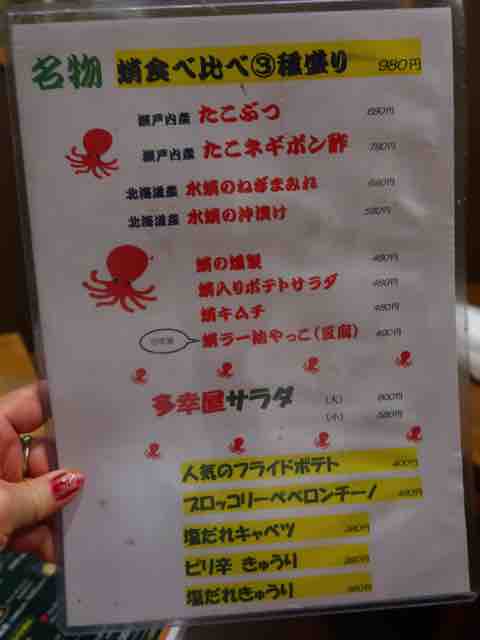 名物 蛸食べ比べ③種盛り 980円
瀬戸内産 たこぶつ 680円
瀬戸内産 たこネギポン酢 780円
北海道産 水蛸のねぎまみれ
北海道産 水蛸の沖漬け 580円
蛸の燻製 480円
蛸入りポテトサラダ 480円
蛸キムチ 480円
蛸ラー油やっこ(豆腐) 480円
多幸屋サラダ (大)
(小)
人気のフライドポテト 400円
ブロッコリーペペロンチーノ
塩だれキャベツ
ピリ辛 きゅうり
塩だれきゅうり